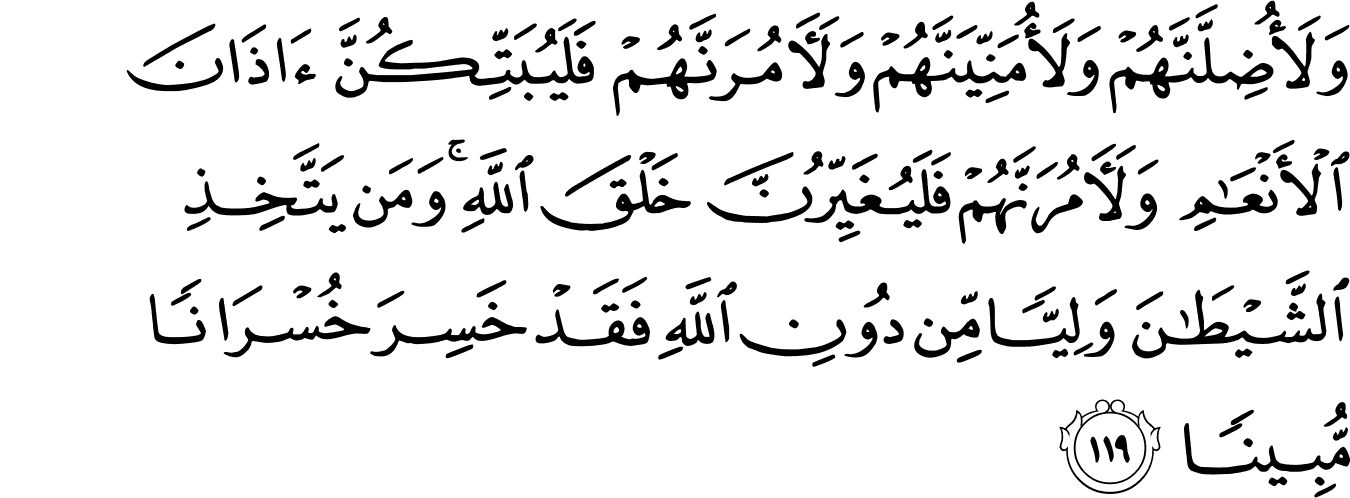 وَلَأُضِلَّنَّهُمۡ وَلَأُمَنِّيَنَّهُمۡ وَلَأٓمُرَنَّهُمۡ فَلَيُبَتِّكُنَّ ءَاذَانَ
ٱلۡأَنۡعَٰمِ وَلَأٓمُرَنَّهُمۡ فَلَيُغَيِّرُنَّ خَلۡقَ ٱللَّهِۚ وَمَن يَتَّخِذِ
ٱلشَّيۡطَٰنَ وَلِيّٗا مِّن دُونِ ٱللَّهِ فَقَدۡ خَسِرَ خُسۡرَانٗا
مُّبِينٗا ١١٩